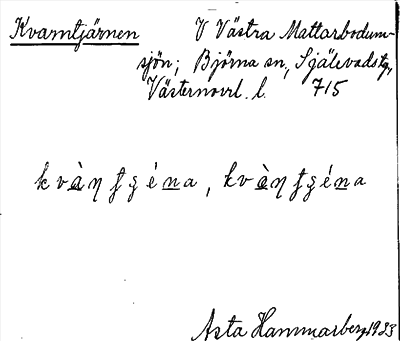 Kvamtjärnen V Västra Mattarbodum-
sjön; Björna sn, Själevadstg,
Västernorrl. l. 715
kvàŋʄgéna, kvèŋʄgéna
Asta Hammarberg 1933